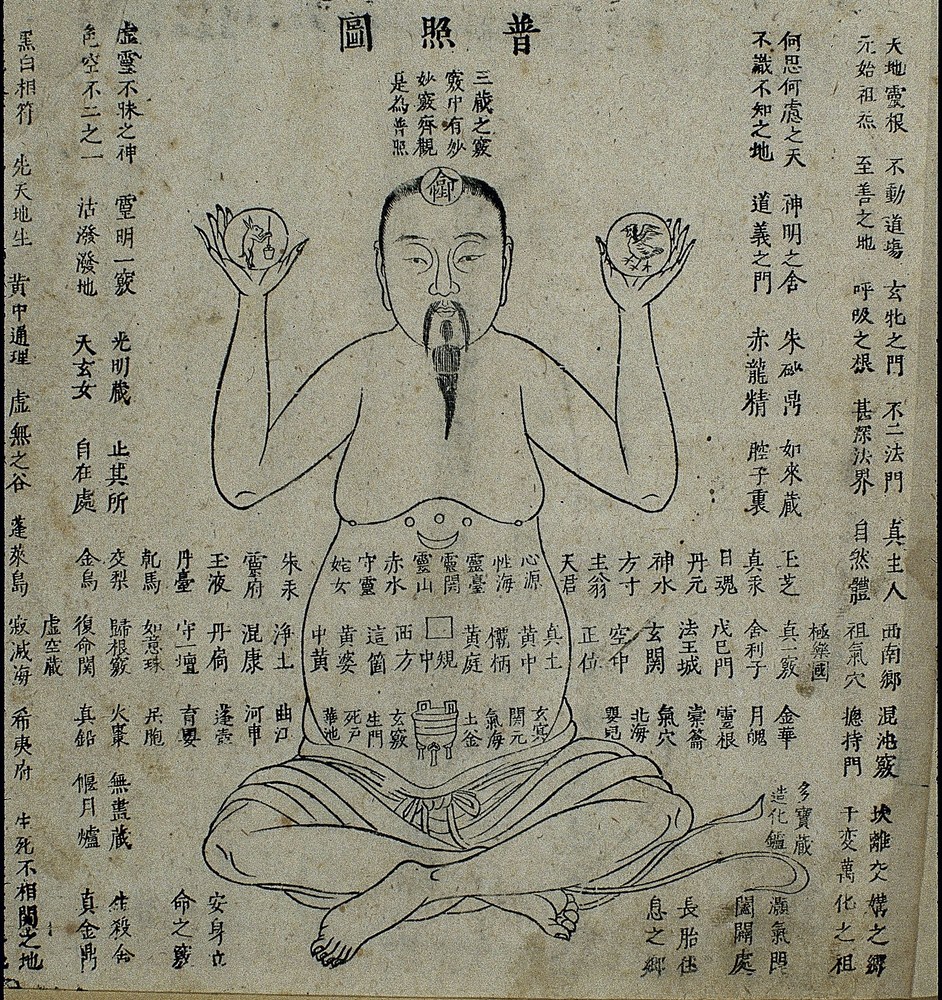 普照圖
三藏之竅
竅中有妙
妙竅齊觀
是為普照
天地靈根　不動道場　玄牝之門　不二法門　真主人　西南鄉　混沌竅　坎離交媾之鄉
元始祖炁　至善之地　呼吸之根　甚深法界　自然體　祖氣穴　總持門　千变萬化之祖
極樂國
多寶藏
造化鑪
何思何慮之天　神明之舍　朱砂鼎　如來藏
不識不知之地　道義之門　赤龍精　腔子裏
玉芝　真一竅　金華　灝氣門
真汞　舍利子　月魄　闔闢處
日魂　戊己門　靈根
丹元　法王城　橐籥　長胎住
神水　玄關　氣穴　息之鄉
方寸　空中　北海
主翁　正位　嬰兒
天君
心源　真土　玄竅
性海　黄中　關元
靈臺　欛柄　氣海
靈關　黄庭　土釜
靈山　規中
赤水　西方　玄竅
守靈　這箇　生門
姹女　黄婆　死戶
中黄　華池
朱汞　淨土　曲江
靈府　混康　河車
玉液　丹扃　蓬壺
丹臺　守一壇　育嬰
乾馬　如意珠　呆胞
安身立
命之竅
虛靈不昧之神　靈明一竅　光明藏　止其所　交梨　歸根竅　火棗　無盡藏　生殺舍
色空不二之一　活潑潑地　天玄女　自在處　金烏　復命關　真鉛　偃月爐　真金鼎
虛空藏
黑白相符　先天地生　黄中通理　虛無之谷　蓬萊島　寂滅海　希夷府　生死不相關之地